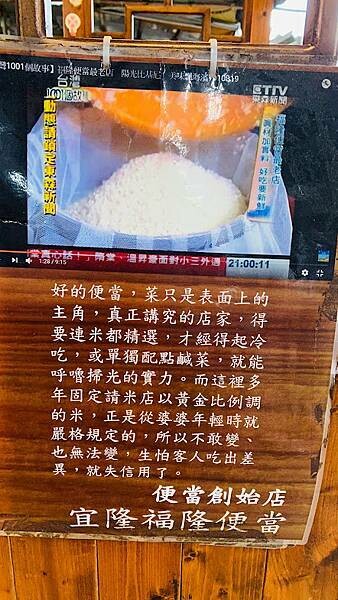 灣1001個故事】福隆便當最老店 陽光比基尼 美味飄海濱 20110819
ETTV
東森新聞
動態請鎖定東森新聞
福隆便當最老店
真材加實料 好吃要新鮮
愛真心話!」隋棠、溫昇豪面對小三外遇
21:00:11
1:28 / 9:15
好的便當，菜只是表面上的
主角，真正講究的店家，得
要連米都精選，才經得起冷
吃，或單獨配點鹹菜，就能
呼嚕掃光的實力。而這裡多
年固定請米店以黃金比例調
的米，正是從婆婆年輕時就
嚴格規定的，所以不敢變、
也無法變，生怕客人吃出差
異，就失信用了。
便當創始店
宜隆福隆便當